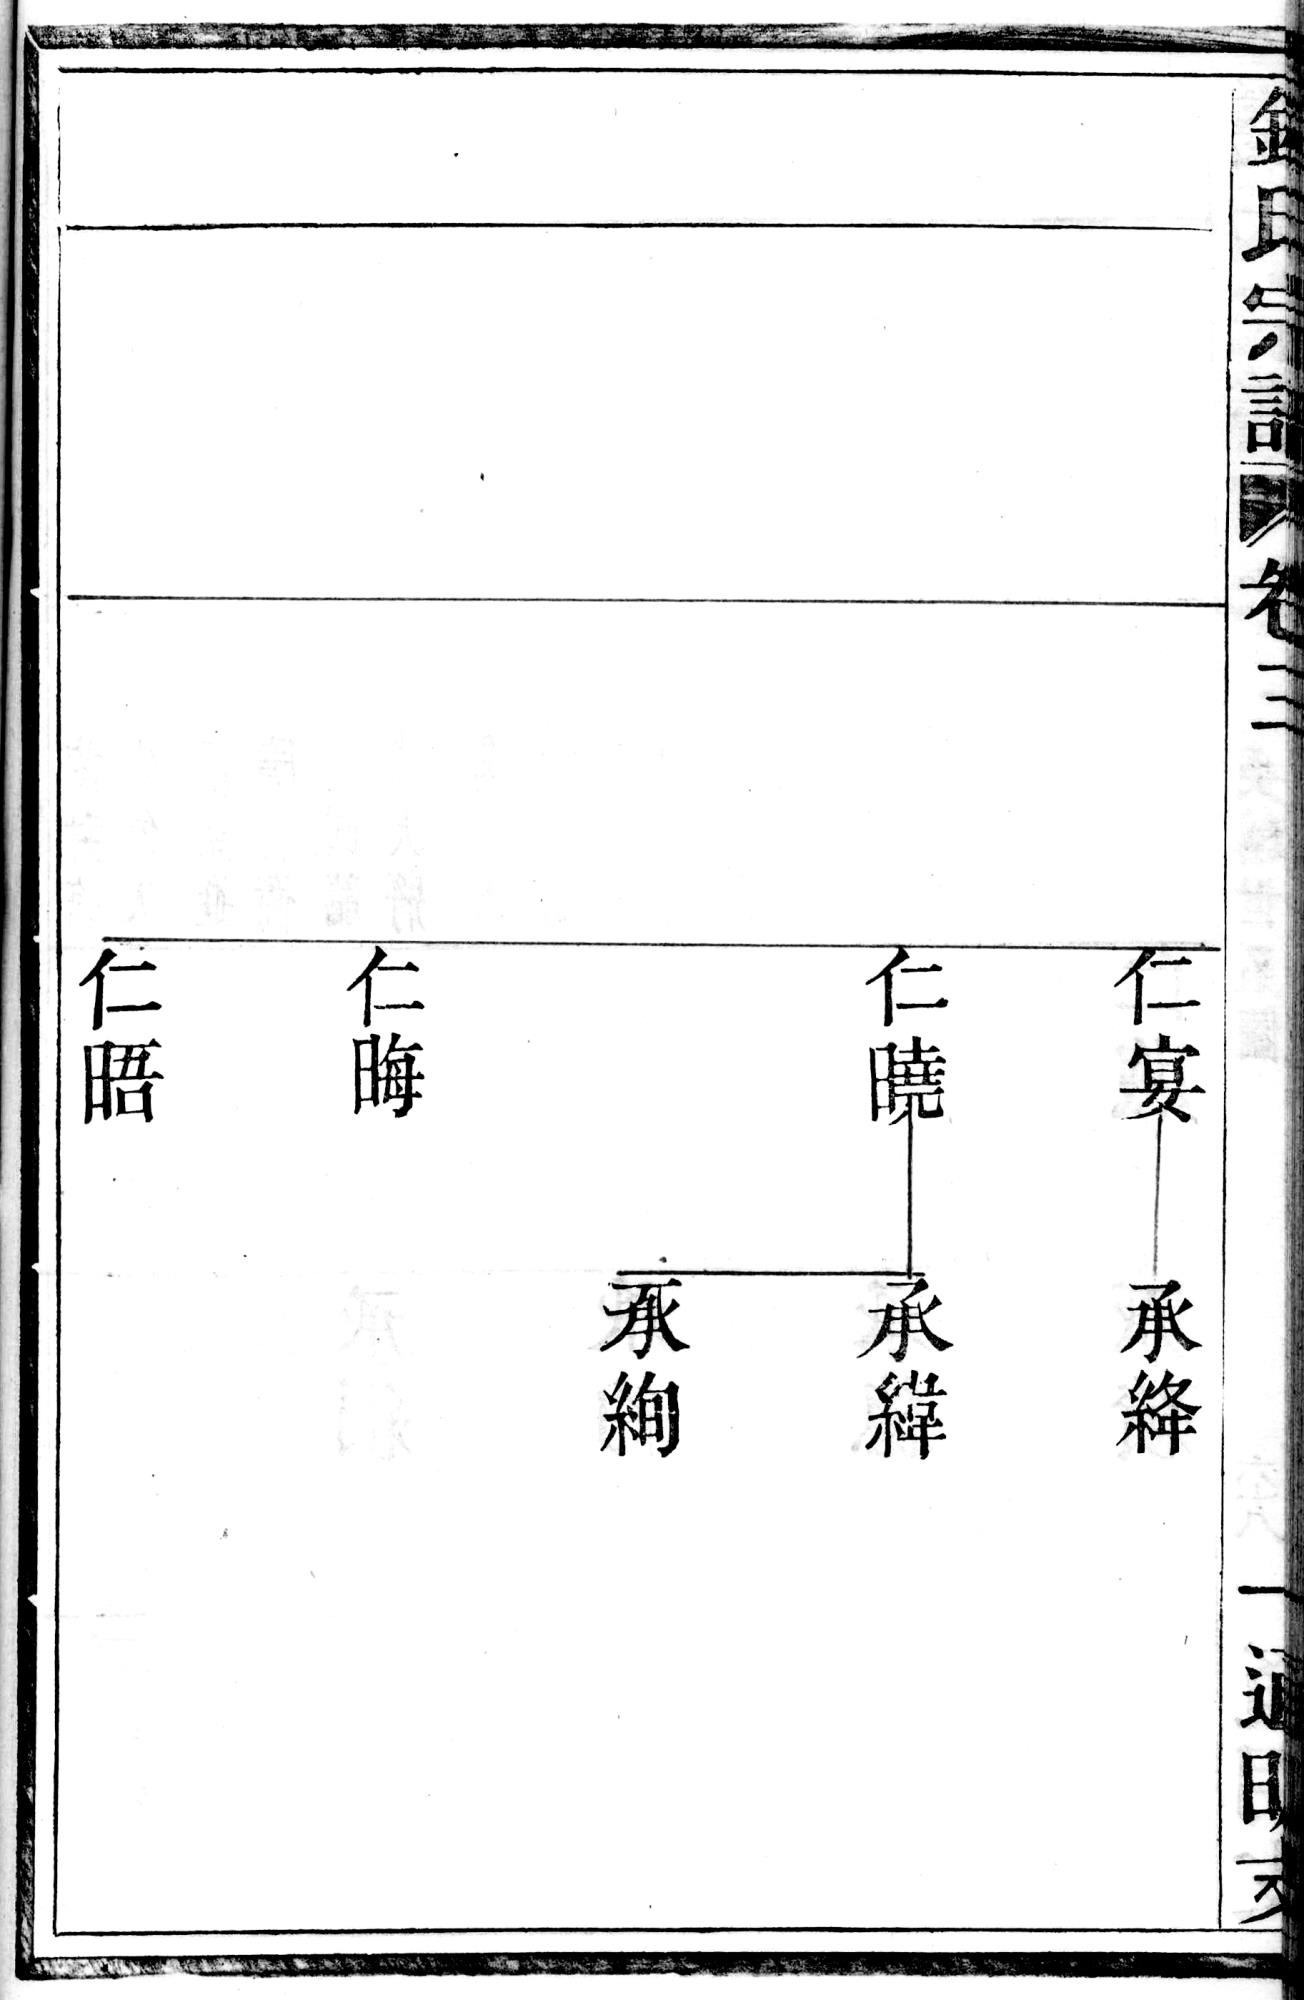 氏宗譜 卷三 一 通明支
仁宴
承絳
仁曉
承緯
承絢
仁晦
仁晤